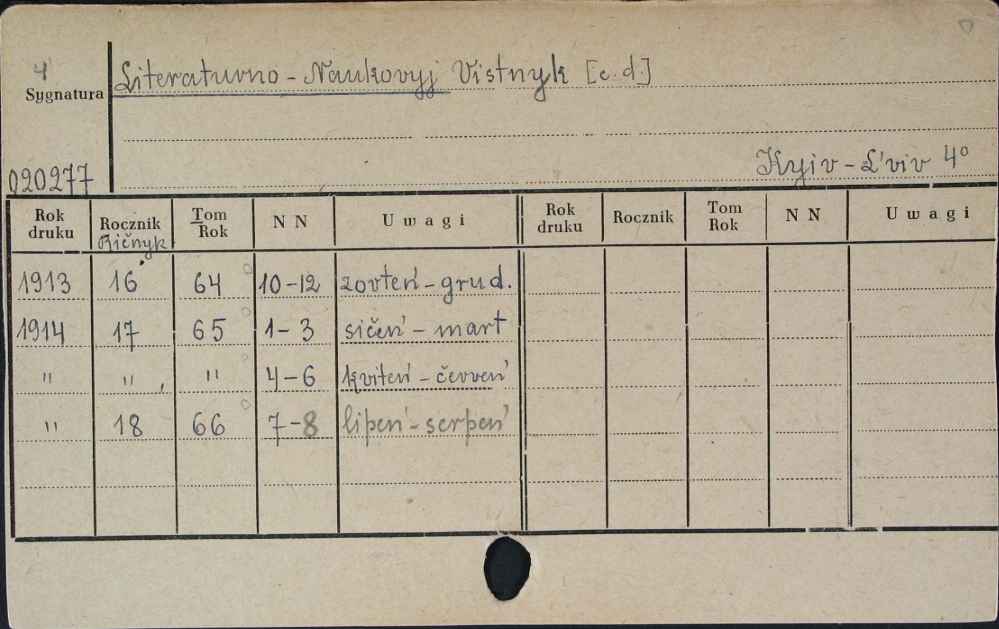 4
Sygnatura
Literaturno-Naukovyj Vistnyk [c.d.]
020277
Kyjiv-L'viv 4°
Rok druku Rocznik Tom Rok N N Uwagi Rok druku Rocznik Tom Rok N N Uwagi
Ričnyk
1913 16 64 10-12 žovteń-grud.
1914 17 65 1-3 sičeń-mart
" " " 4-6 kviteń-červeń
" 18 66 7-8 lipeń-serpeń